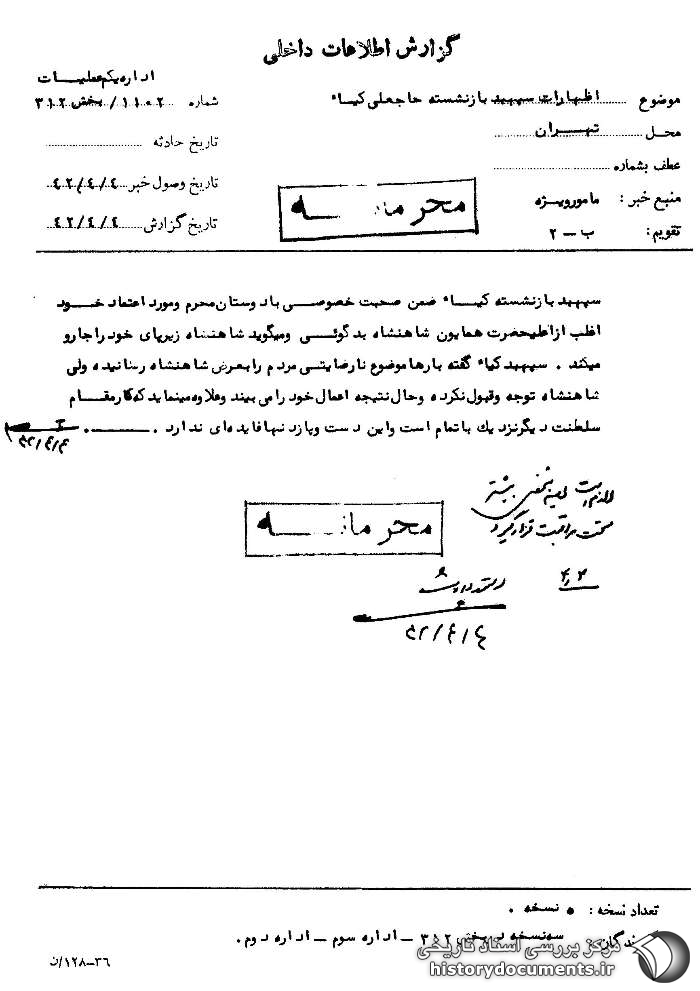 گزارش اطلاعات داخلی
اداره یکم عملیات
موضوع اظهارات سپهبد بازنشسته حاجعلی کیاء
شماره ۱۱۰۲/بخش ۳۱۲
محل تهران
تاریخ حادثه
عطف بشماره
تاریخ وصول خبر ۴۲/۴/۴
منبع خبر: مامورویژه
تاریخ گزارش ۴۲/۴/۴
تقویم: ب - ۲
محرمانه
سپهبد بازنشسته کیاء ضمن صحبت خصوصی با دوستان محرم ومورد اعتماد خود
اغلب ازاعلیحضرت همایون شاهنشاه بدگوئی ومیگوید شاهنشاه زیرپای خود را جارو
میکند . سپهبد کیاء گفته بارها موضوع نارضایتی مردم را بعرض شاهنشاه رسانیده ولی
شاهنشاه توجه وقبول نکرده وحال نتیجه اعمال خود را می بیند وعلاوه مینماید که کار مقام
سلطنت دیگر نزدیك با تمام است واین دست وپازدنها فایده ای ندارد .
۴۲/۴/۴
لازم است
بیشتر
تحت مراقبت قرار گیرد
محرمانه
۴/۴
۴۲/۴/۴
تعداد نسخه : ۵ نسخه .
گیرندگان: سه نسخه در بخش ۳۱۲ - اداره سوم - اداره دوم.
۳۶-۱۲۸/ن
مرکز بررسی اسناد تاریخی
historydocuments.ir